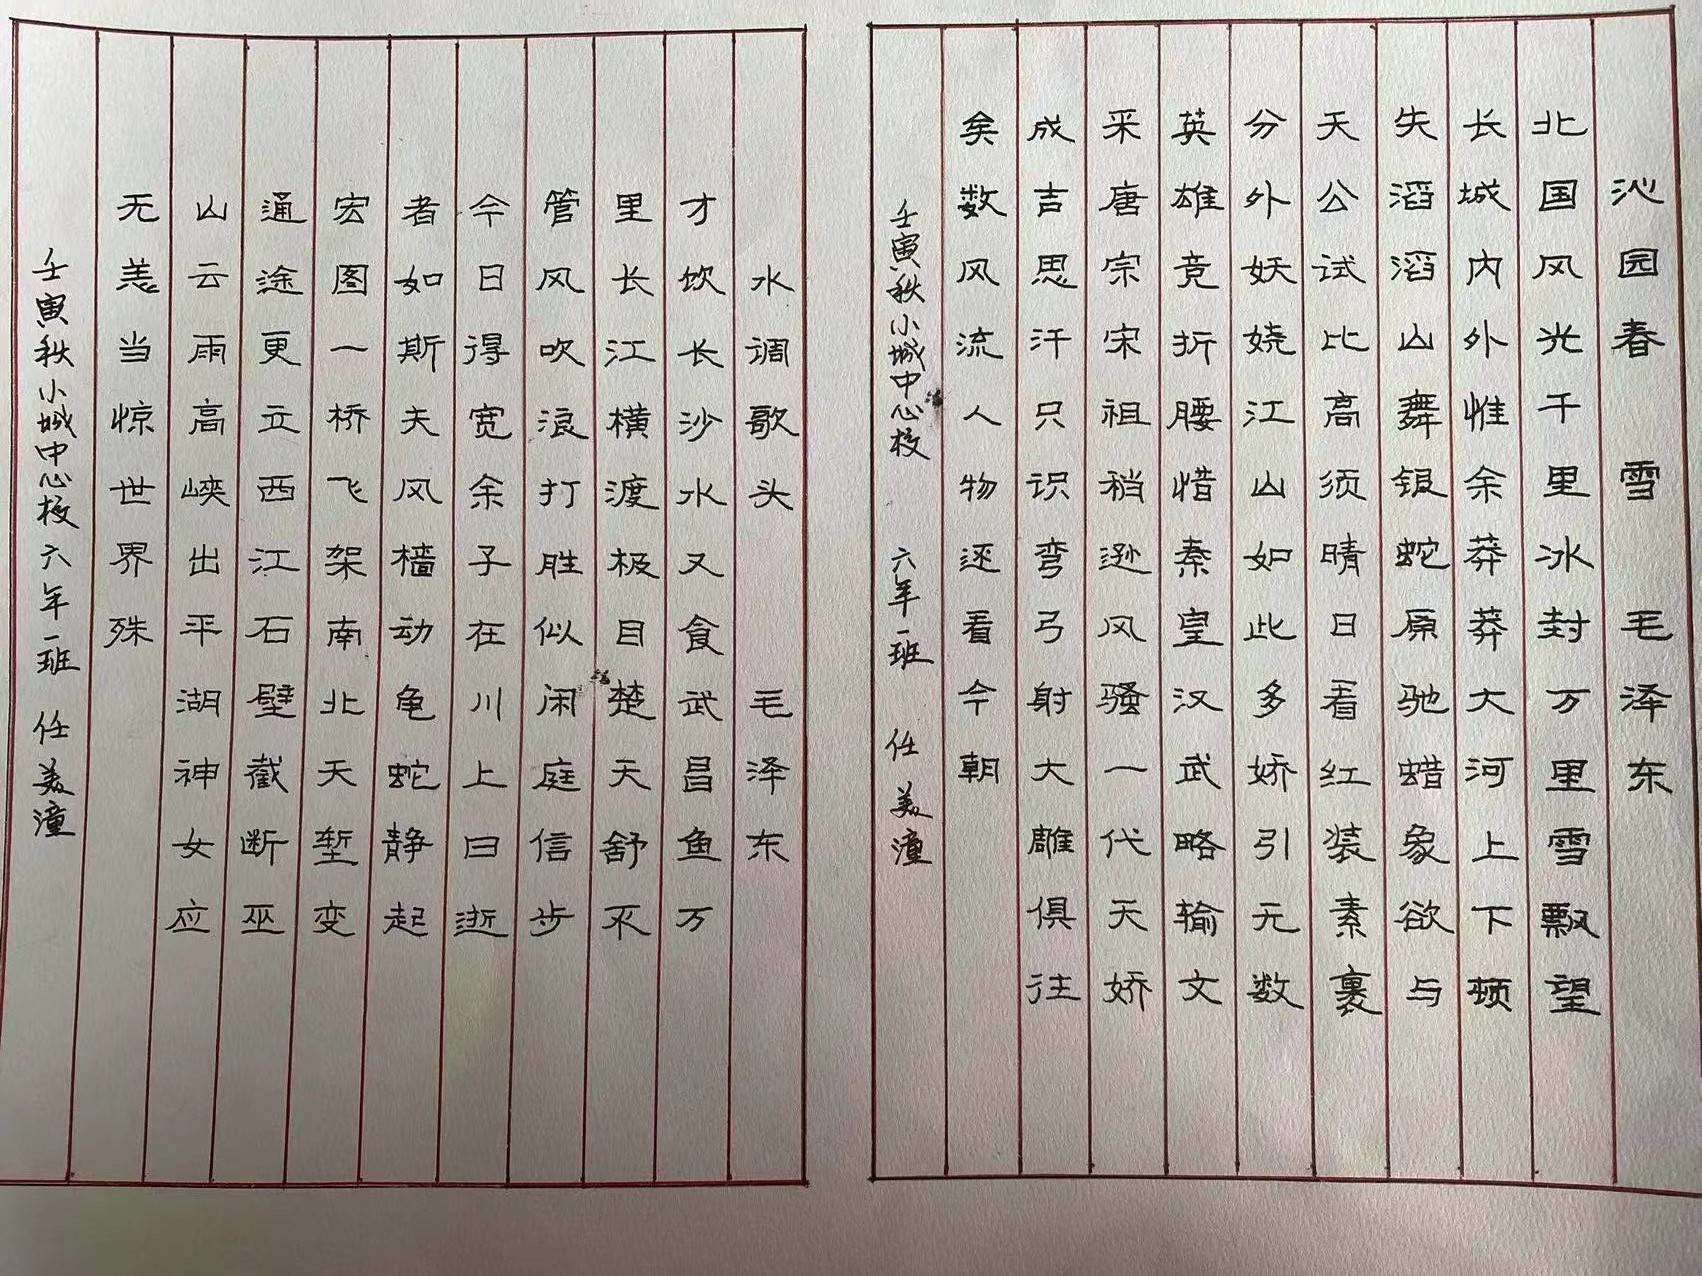 沁园春 雪 毛泽东
北国风光千里冰封万里雪飘望
长城内外惟余莽莽大河上下顿
失滔滔山舞银蛇原驰蜡象欲与
天公试比高须晴日看红装素裹
分外妖娆江山如此多娇引元数
英雄竞折腰惜秦皇汉武略输文
采唐宗宋祖稍逊风骚一代天娇
成吉思汗只识弯弓射大雕俱往
矣数风流人物还看今朝
壬寅秋小城中心校 六年一班 任美潼
水调歌头 毛泽东
才饮长沙水又食武昌鱼万
里长江横渡极目楚天舒不
管风吹浪打胜似闲庭信步
今日得宽余子在川上曰逝
者如斯夫风樯动龟蛇静起
宏图一桥飞架南北天堑变
通途更立西江石壁截断巫
山云雨高峡出平湖神女应
无恙当惊世界殊
壬寅秋小城中心校六年一班 任美潼